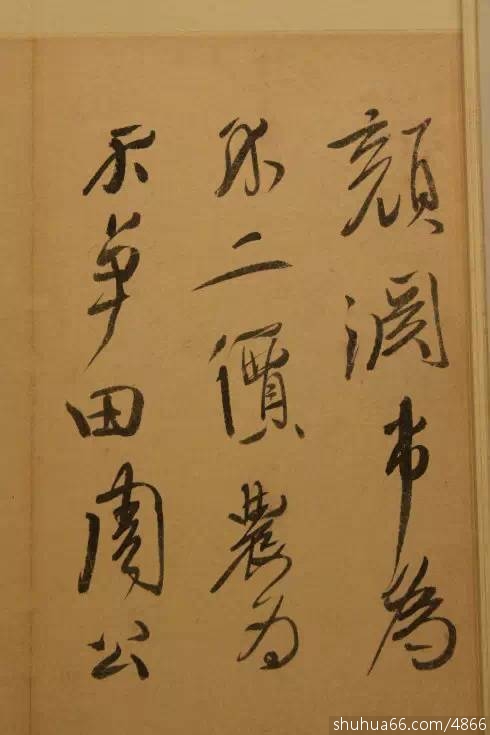 顏淵市為
不二價農為
不爭田周公
shuhua66.com/4866